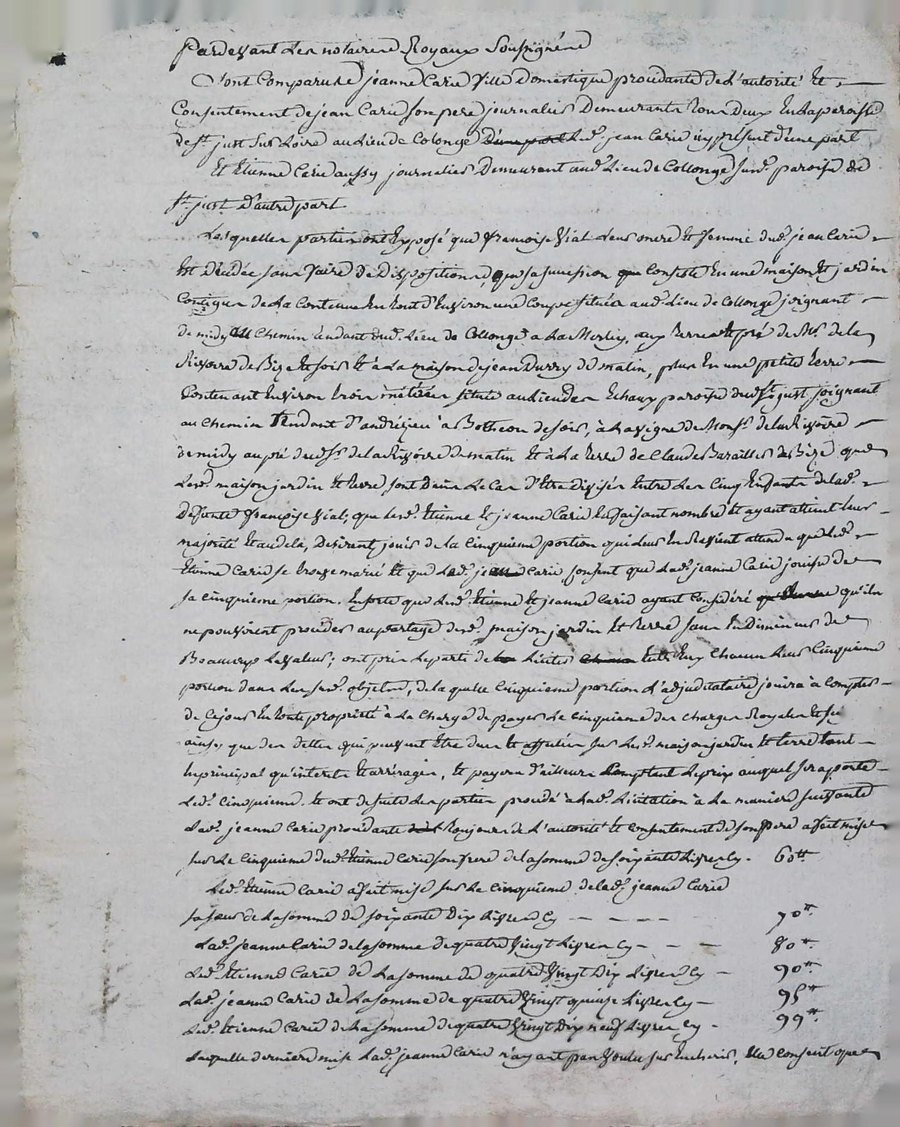 Pardevant Les notaires Royaux Soussignés
Sont Comparu Jeanne Carié fille Domestique procedante de L'autorité Et
Consentement de jean Carié son pere journalier Demeurants tous Deux En La paroisse
de st. just sur Loire au Lieu de Colonge d'une part led. jean Carié icy present d'une part
Et Etienne Carié aussy journalier Demeurant aud. Lieu de Collonge susd. paroisse de
st. just d'autre part
Lesquelles parties ont Exposé que françoise Vial Leur mere Et femme dud. jean Carié
Est Décédée sans faire de Dispositions, que sa succession Consiste En une maison Et jardin
Contigus de La Contenue En tout d'Environ une Coupe situés aud. Lieu de Collonge joignant
de midy Chemin tendant dud. Lieu de Collonge a La aux terres Et pré de Mr. de la
Rivoire de Bize Et soir Et à La maison de jean Durry de matin, plus En une petite terre
Contenant Environ trois métérées située au Lieu des Echaux paroisse dud. st. just joignant
au chemin Tendant d'andrézieu à Bothéon de soir, à La vigne de Monsr. de la Rivoire
de midy au pré dud. sr. de la Rivoire de matin Et à La terre de Claude Barailler de Bize que
Lesd. maison jardin Et terre sont Dans Le Cas d'Etre Divisés Entre Les Cinq Enfants de lad.
Défunte françoise Vial; que Lesd. Etienne Et jeanne Carié En faisant nombre Et ayant atteint Leur
majorité Et au dela, Desirent jouir de La Cinquieme portion qui Leur En Revient attendu que Led.
Etienne Carié se trouve marié Et que Led. jean Carié Consent que Lad. jeanne Carié jouisse de
sa cinquieme portion. Ensorte que Lesd. Etienne Et jeanne Carié ayant Considéré qu'ils
ne pouvoient proceder au partage desd. maison jardin Et terre sans En Diminuer de
Beaucoup La valeur; ont pris Le parti de Liciter Entr'Eux Chacun Leur Cinquieme
portion dans Les susd. objets, de laquelle Cinquieme portion L'adjudicataire jouira à Compter
de Ce jour En toute propriété à La Charge de payer Le cinquieme des Charges Royales Et
ainsy que des dettes qui peuvent Etre dues Et affectées sur Lesd. maison jardin Et terre tant
En principal qu'interets Et arrérages, Et payera d'ailleurs Comptant Le prix auquel sera porté
Led. Cinquieme. Et ont de suite Les parties procédé à Lad. Licitation à La maniere suivante
Lad. jeanne Carié procédante toujours de L'autorité Et Consentement de son pere a fait mise
sur Le cinquieme dud. Etienne Carié son frere de la somme de soixante Livres Cy - 60tt
Led. Etienne Carié a fait mise sur Le cinquieme de lad. jeanne Carié
sa sœur de La somme de soixante Dix Livres Cy - - - - 70tt
Lad. jeanne Carié de la somme de quatre Vingt Livres Cy - - - 80tt
Led. Etienne Carié de La somme de quatre Vingt Dix Livres Cy - 90tt
Lad. jeanne Carié de La somme de quatre Vingt quinze Livres Cy - 95tt
Led. Etienne Carié de La somme de quatre Vingt Dix neuf Livres Cy - 99tt
Laquelle derniere mise Lad. jeanne Carié n'ayant pas Voulu sur Encherir, Elle Consent que